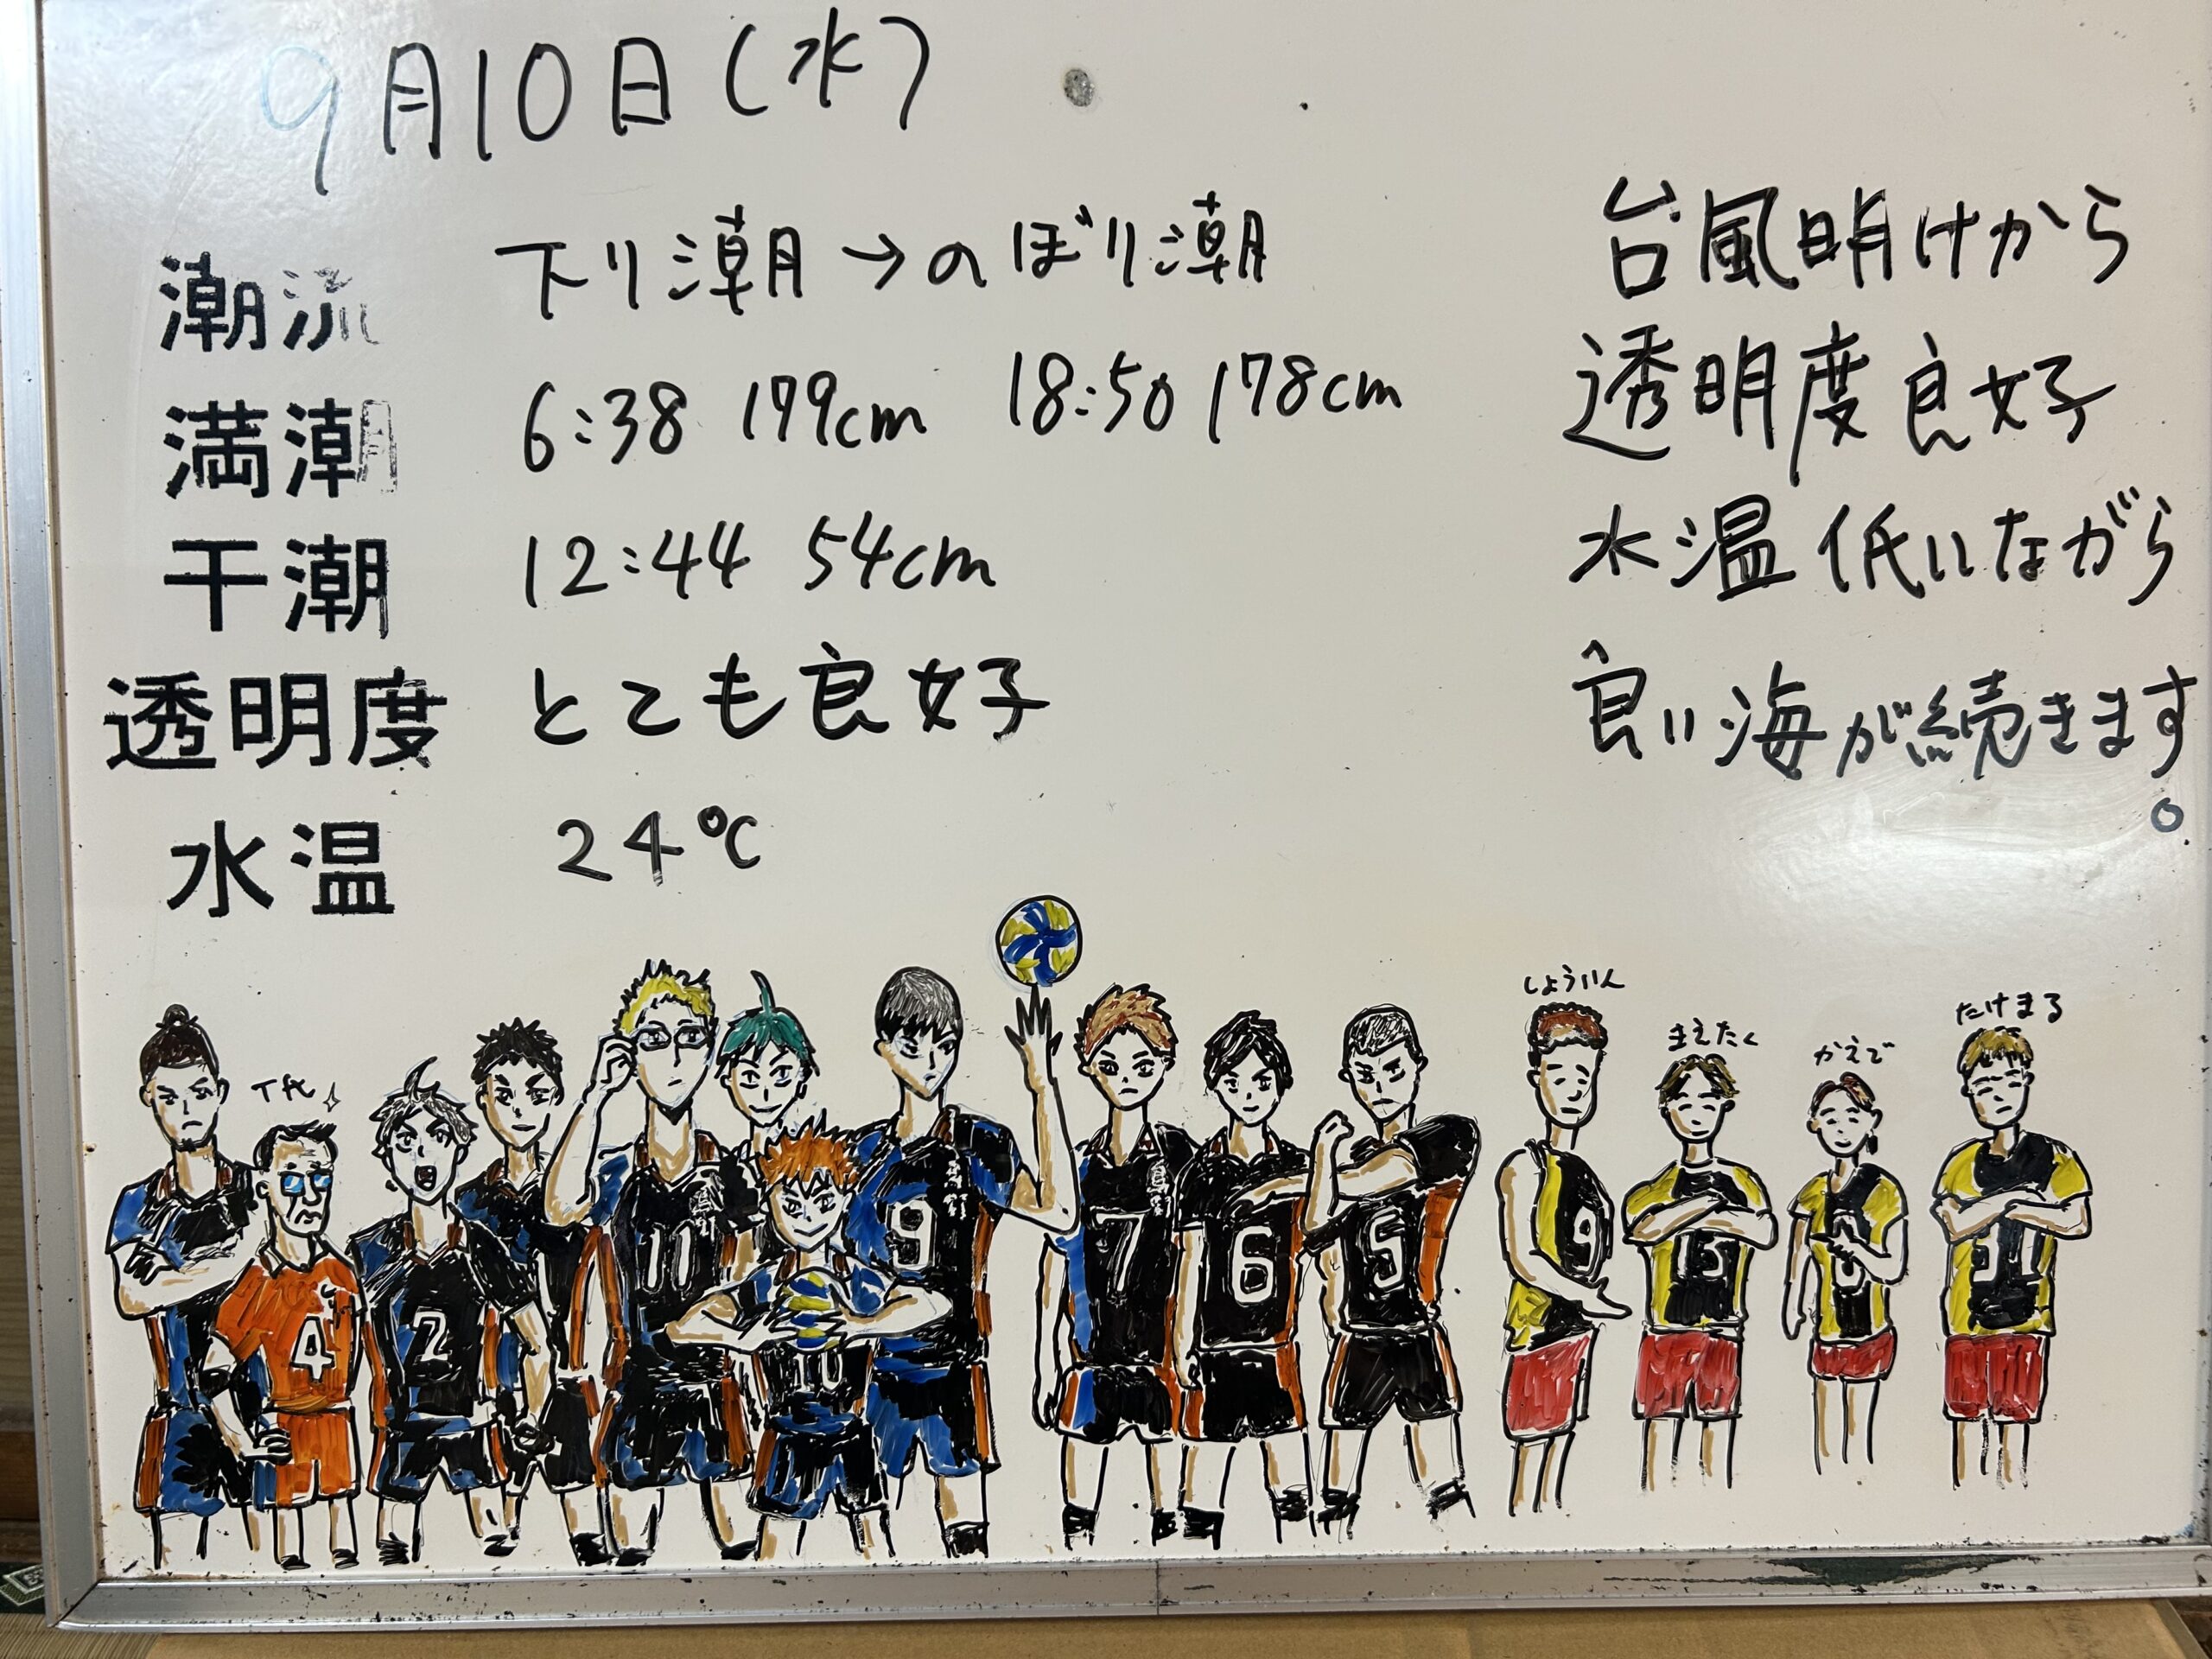 9月10日(水)
潮流 下り潮→のぼり潮
満潮 6:38 179cm 18:50 178cm
干潮 12:44 54cm
透明度 とても良好
水温 24℃
台風明けから
透明度良好
水温低いながら
良い海が続きます。
しょういん
まえたく
かえで
たけまる
4
2
11
10
9
7
6
5
9
13
31